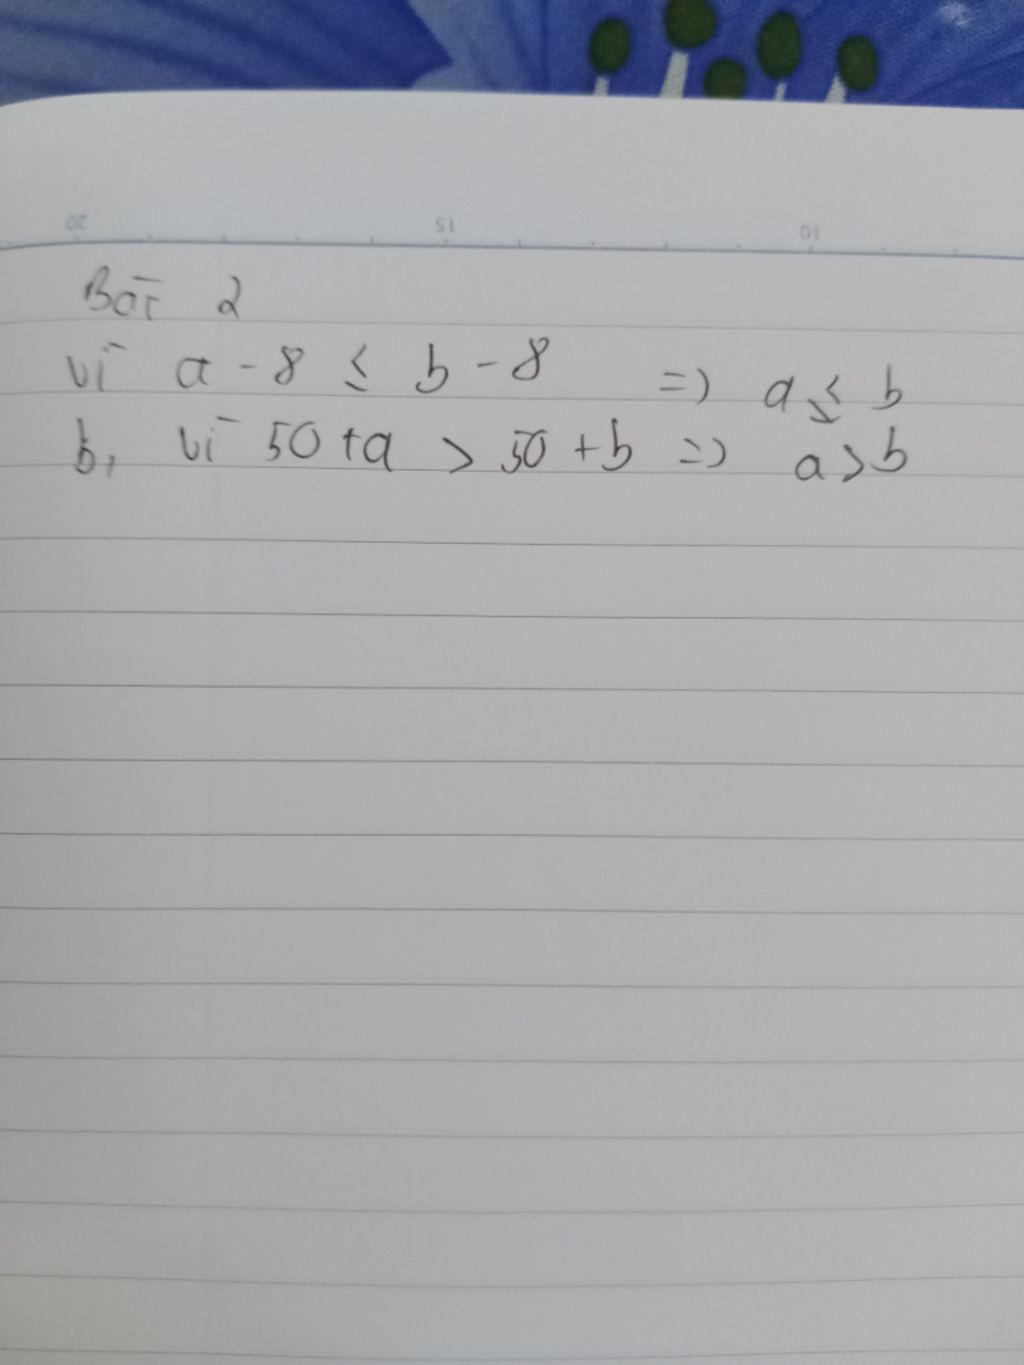 20 15 10
Bài 2
vì a - 8 ≤ b - 8 => a ≤ b
b, vì 50 + a > 50 + b => a > b